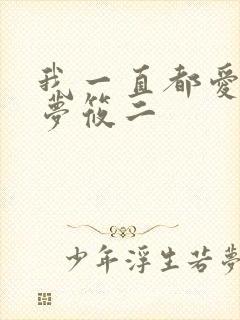 我一直都愛
夢筱二
少年浮生若夢